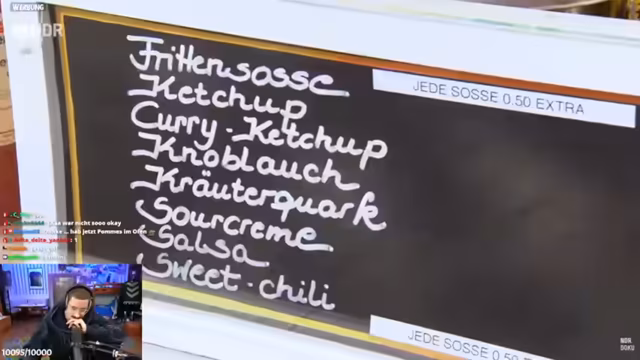 WERBUNG
NDR
Frittensosse
Ketchup
Curry-Ketchup
Knoblauch
Kräuterquark
Sourcreme
Salsa
Sweet-chili
JEDE SOSSE 0.50 EXTRA
JEDE SOSSE 0.50
war nicht sooo okay
hab jetzt Pommes im Ofen
10095/10000
NDR
DOKU